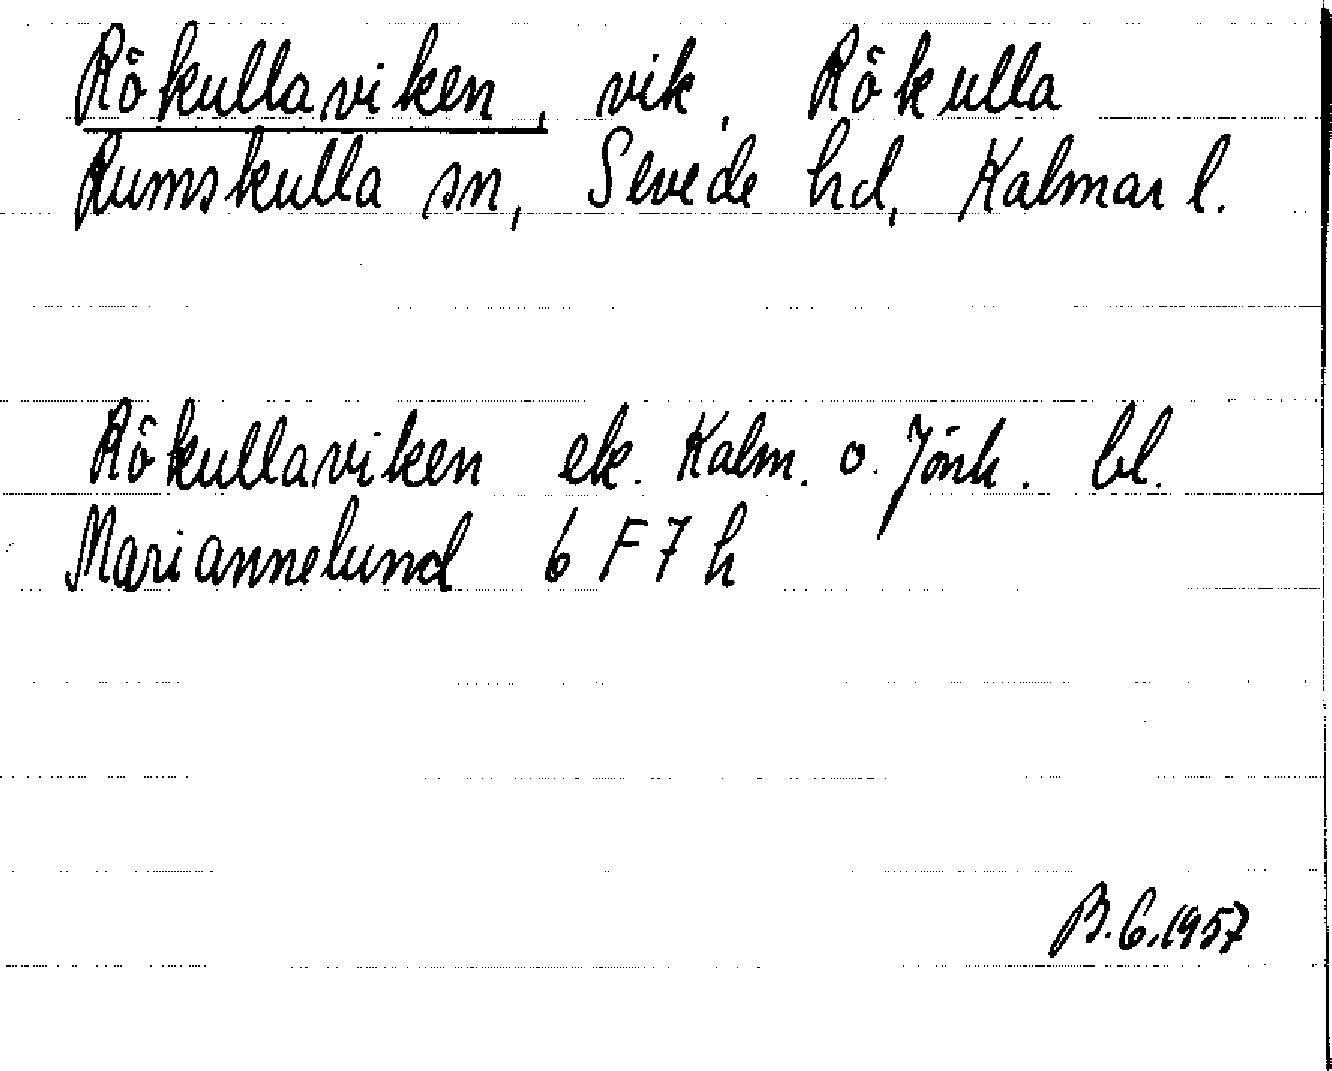 Rökullaviken, vik, Rökulla
Rumskulla sn, Sevede hd, Kalmar l.
Rökullaviken ek. Kalm. o. Jönk. bl.
Mariannelund 6 F 7 h
B.G. 1957